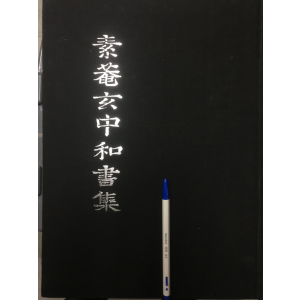 素菴玄中和書集